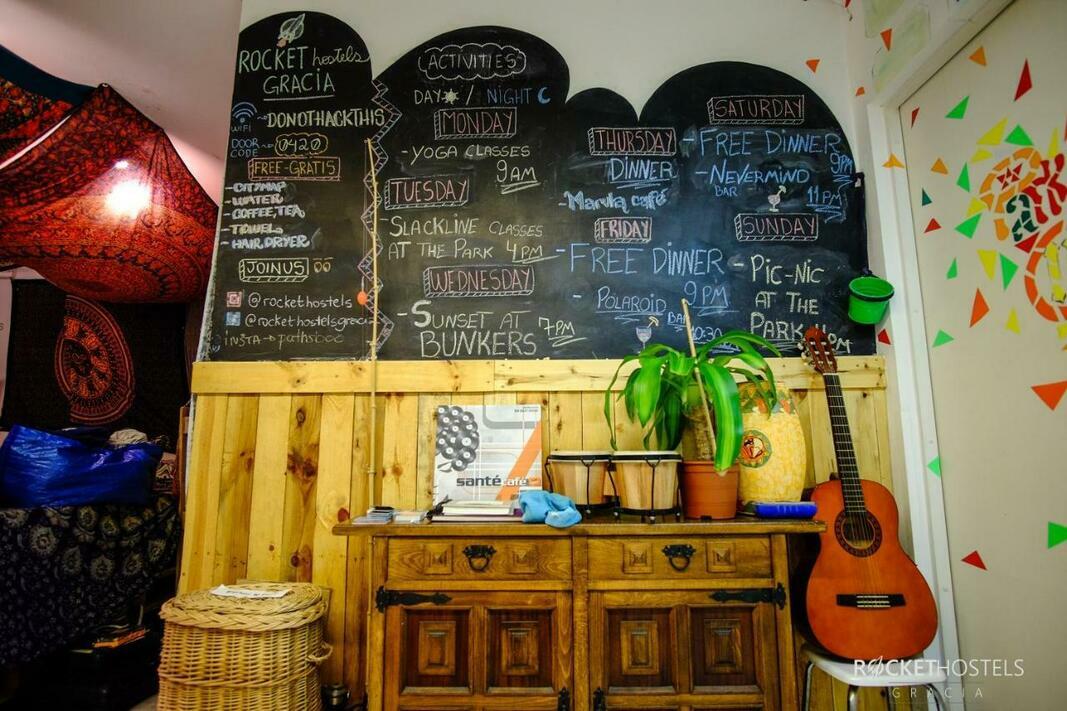 ROCKET hostels
GRACIA
WIFI
DONOTHACKTHIS
DOOR CODE
0420
FREE-GRATIS
- CITYMAP
- WATER
- COFFEE, TEA
- TOWEL
- HAIR DRYER
JOIN US
@rockethostels
@rockethostelsgracia
INSTA → pathsbcc
ACTIVITIES
DAY / NIGHT
MONDAY
- YOGA CLASSES
9AM
TUESDAY
- SLACKLINE CLASSES
AT THE PARK 4PM
WEDNESDAY
- SUNSET AT
BUNKERS 7PM
THURSDAY
DINNER
- Manka café
FRIDAY
- FREE DINNER
9PM
- POLAROID BAR
10:30
SATURDAY
- FREE DINNER
9PM
- NEVERMIND
BAR
11PM
SUNDAY
- PIC-NIC
AT THE
PARK
santé café
ROCKETHOSTELS
GRACIA